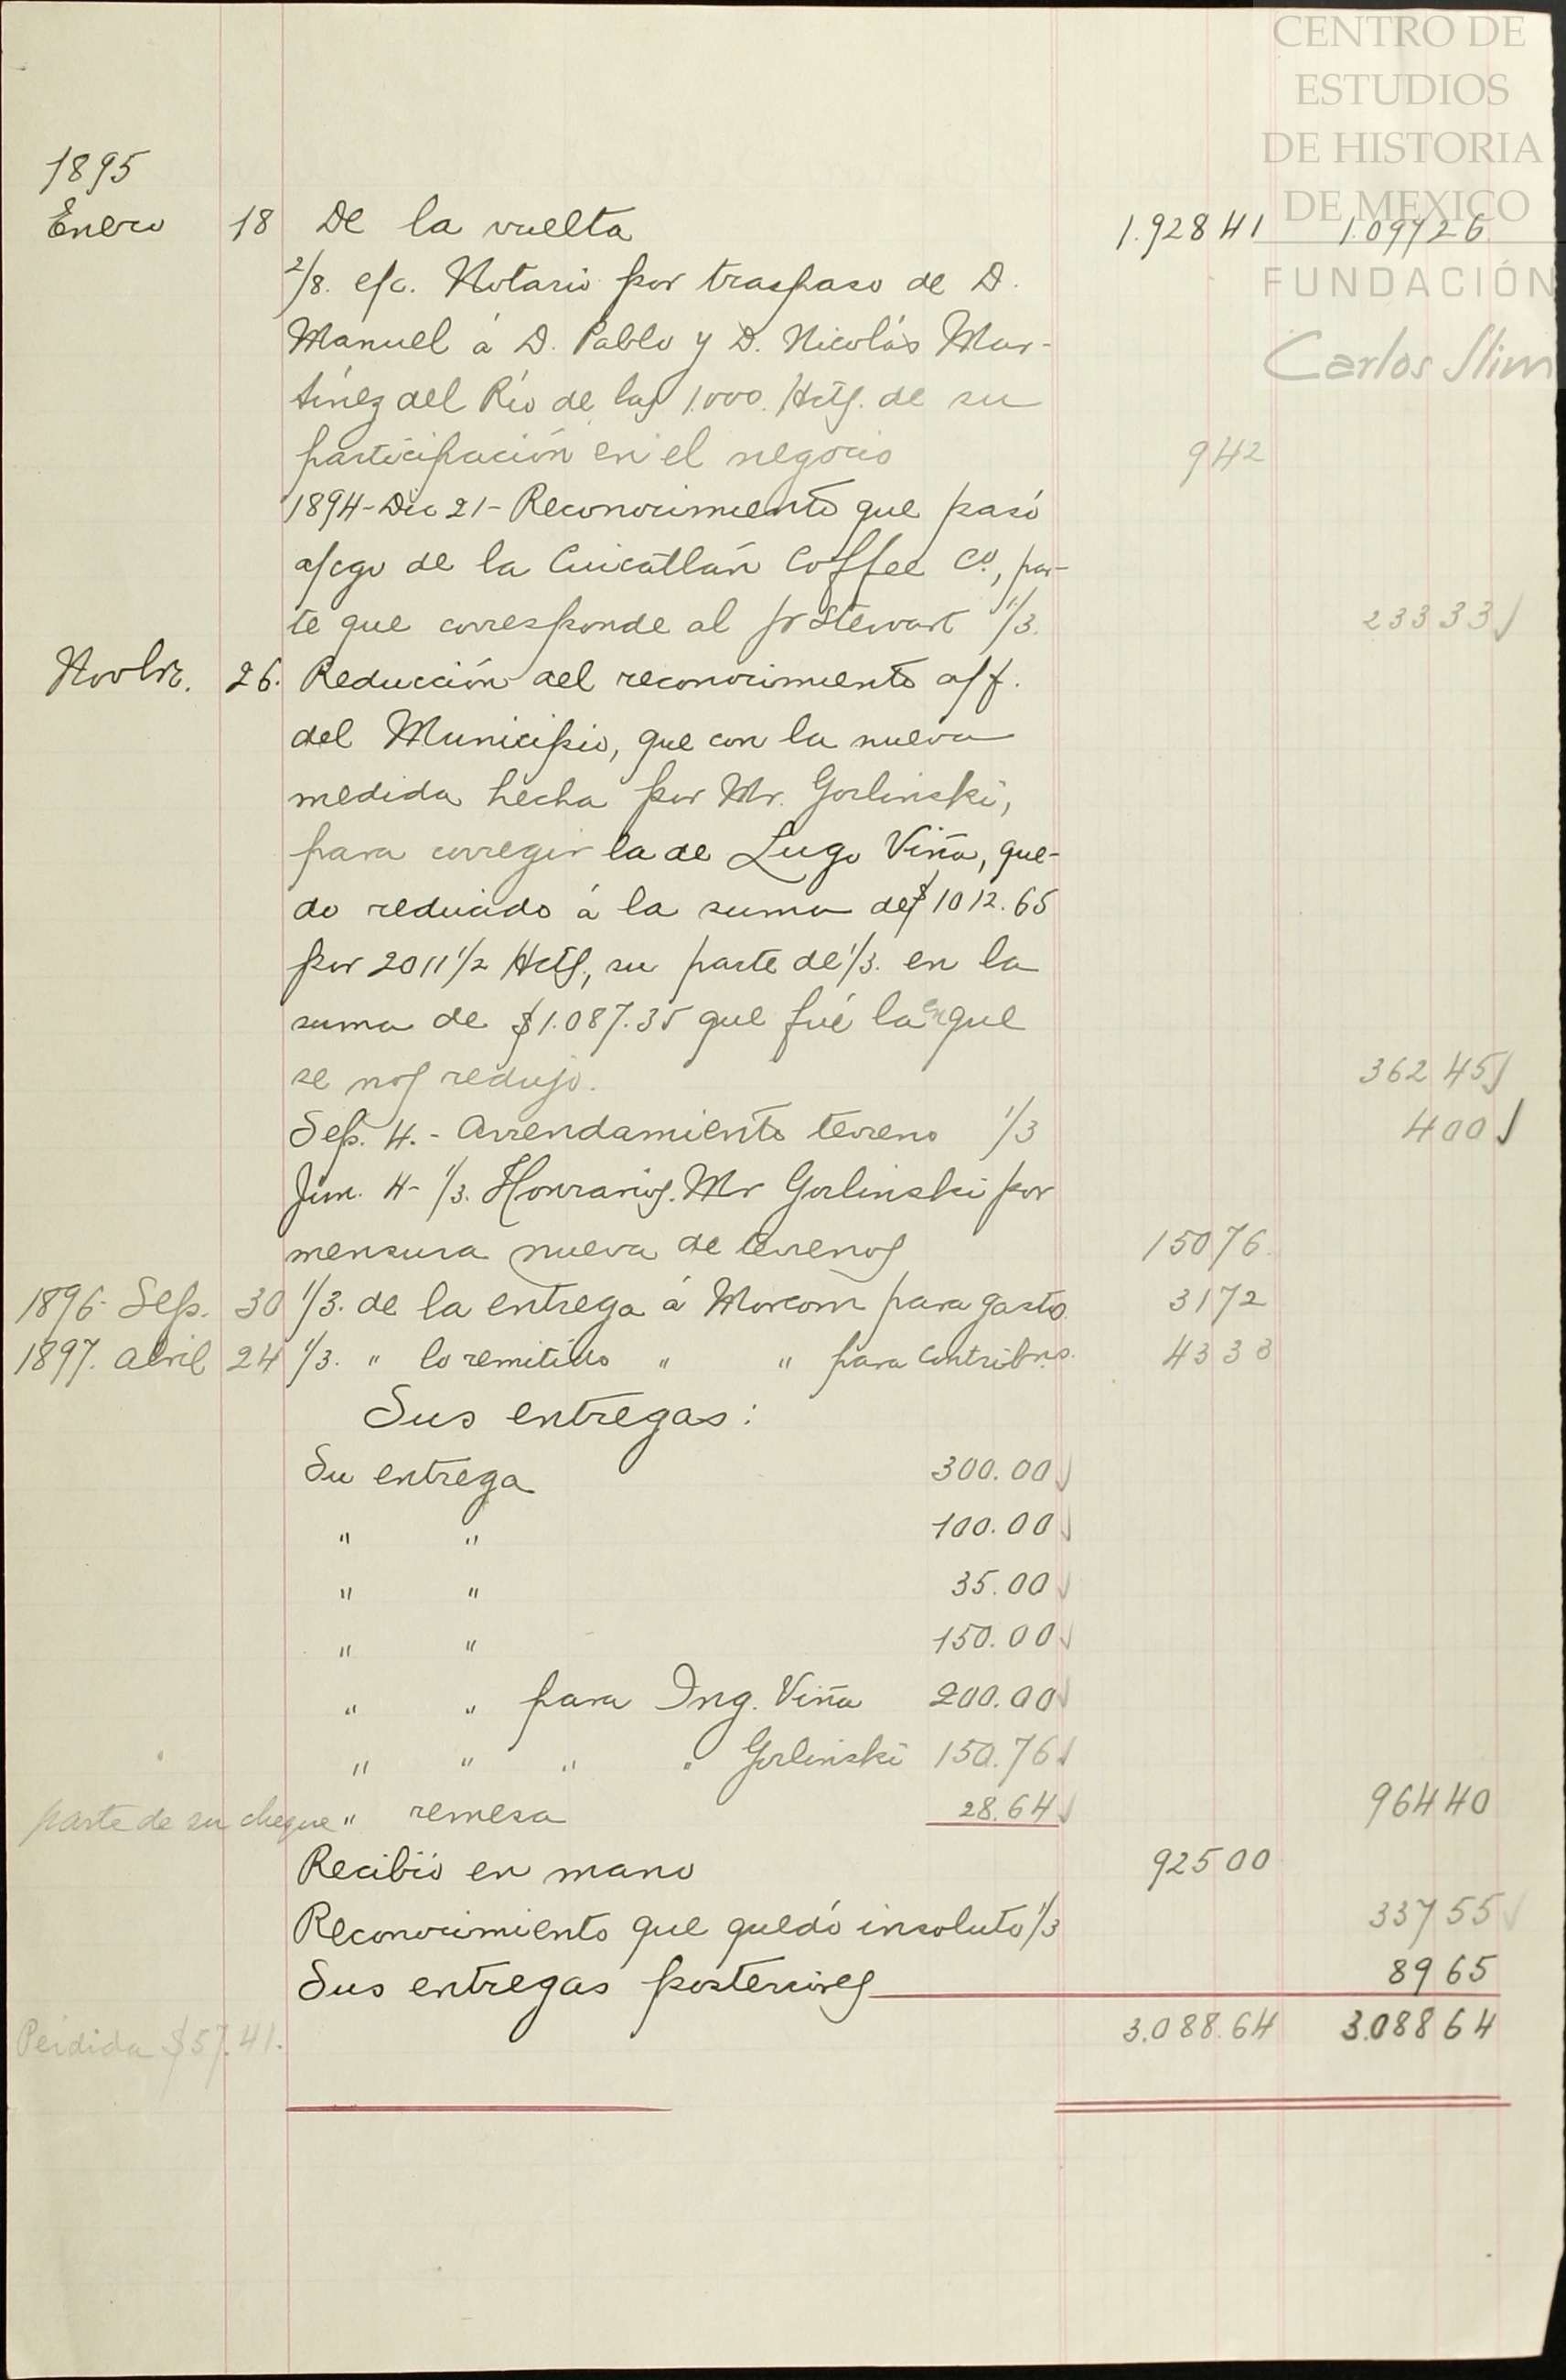 CENTRO DE
ESTUDIOS
DE HISTORIA
DE MEXICO
FUNDACIÓN
Carlos Slim
1895
Enero 18 De la vuelta 1.928 41 1.097 26
2/8. c/c. Notario por traspaso de D.
Manuel á D. Pablo y D. Nicolás Mar-
tínez del Río de las 1.000. Hcts. de su
participación en el negocio 9 42
1894-Dic 21- Reconocimiento que pasó
a/cgo de la Cuicatlán Coffee Co, par-
te que corresponde al Sr Stewart 1/3. 233 33
Novbre. 26. Reducción del reconocimiento a/f.
del Municipio, que con la nueva
medida hecha por Mr. Gorlinski,
para corregir la de Lugo Viña, que-
do reducido á la suma de $1012.65
por 2011 1/2 Hcts., su parte de 1/3. en la
suma de $1.087.35 que fué la en que
se nos redujo. 362 45
Sep. 4.- Arrendamiento terreno 1/3 4 00
Jun. 4- 1/3. Honrarios. Mr Gorlinski por
mensura nueva de terrenos 150 76
1896- Sep. 30 1/3. de la entrega á Morcom para gasto. 31 72
1897. Abril 24 1/3. " lo remitido " " para contribns. 43 33
Sus entregas:
Su entrega 300.00
" " 100.00
" " 35.00
" " 150.00
" " para Ing. Viña 200.00
" " " " Gorlinski 150.76
parte de su cheque " remesa 28.64 964 40
Recibió en mano 925 00
Reconocimiento que quedó insoluto 1/3 337 55
Sus entregas posteriores 89 65
3.088.64 3.088 64
Perdida $57.41.